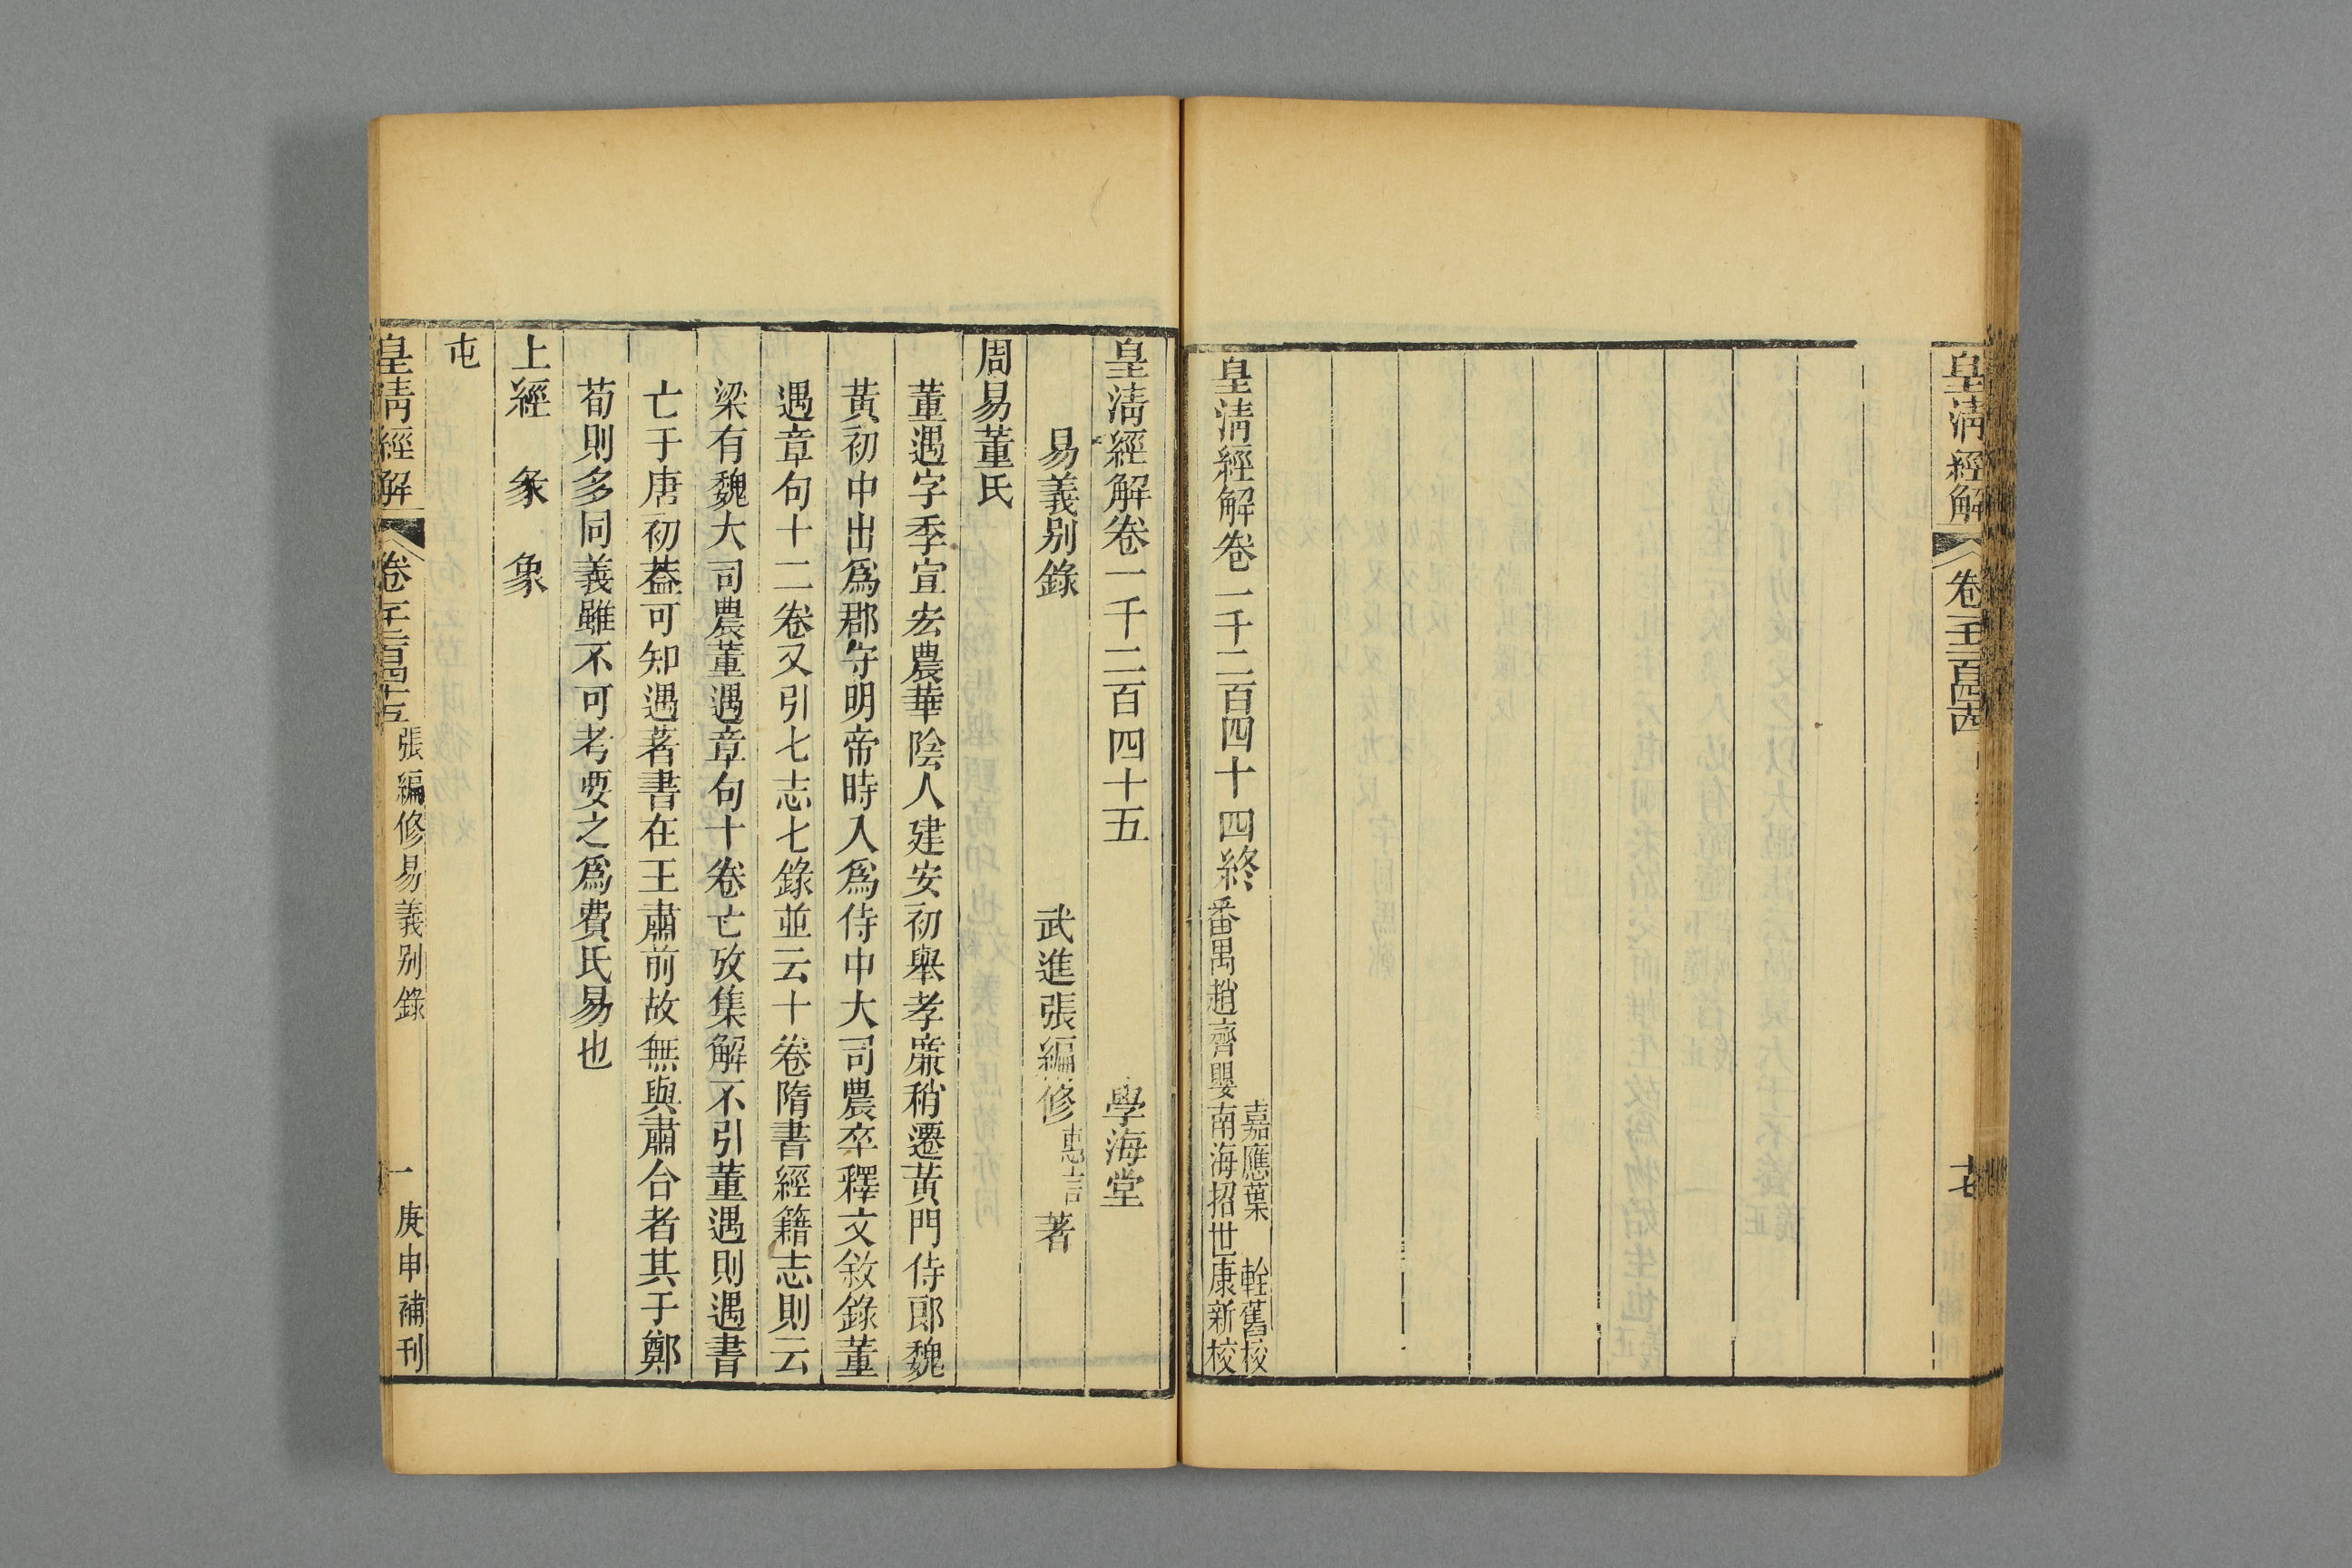 皇清經解
卷一千二百四十四
七
皇清經解卷一千二百四十四終
嘉應葉 輇舊校
番禺趙齊嬰南海招世康新校
皇清經解卷一千二百四十五 學海堂
易義别錄 武進張編修惠言著
周易董氏
董遇字季宣宏農華陰人建安初舉孝廉稍遷黃門侍郎魏
黃初中出爲郡守明帝時入爲侍中大司農卒釋文敘錄董
遇章句十二卷又引七志七錄並云十卷隋書經籍志則云
梁有魏大司農董遇章句十卷亡攷集解不引董遇則遇書
亡于唐初葢可知遇著書在王肅前故無與肅合者其于鄭
荀則多同義雖不可考要之爲費氏易也
上經 彖 象
屯
皇清經解
卷一千二百四十五
張編修易義别錄
一
庚申補刊